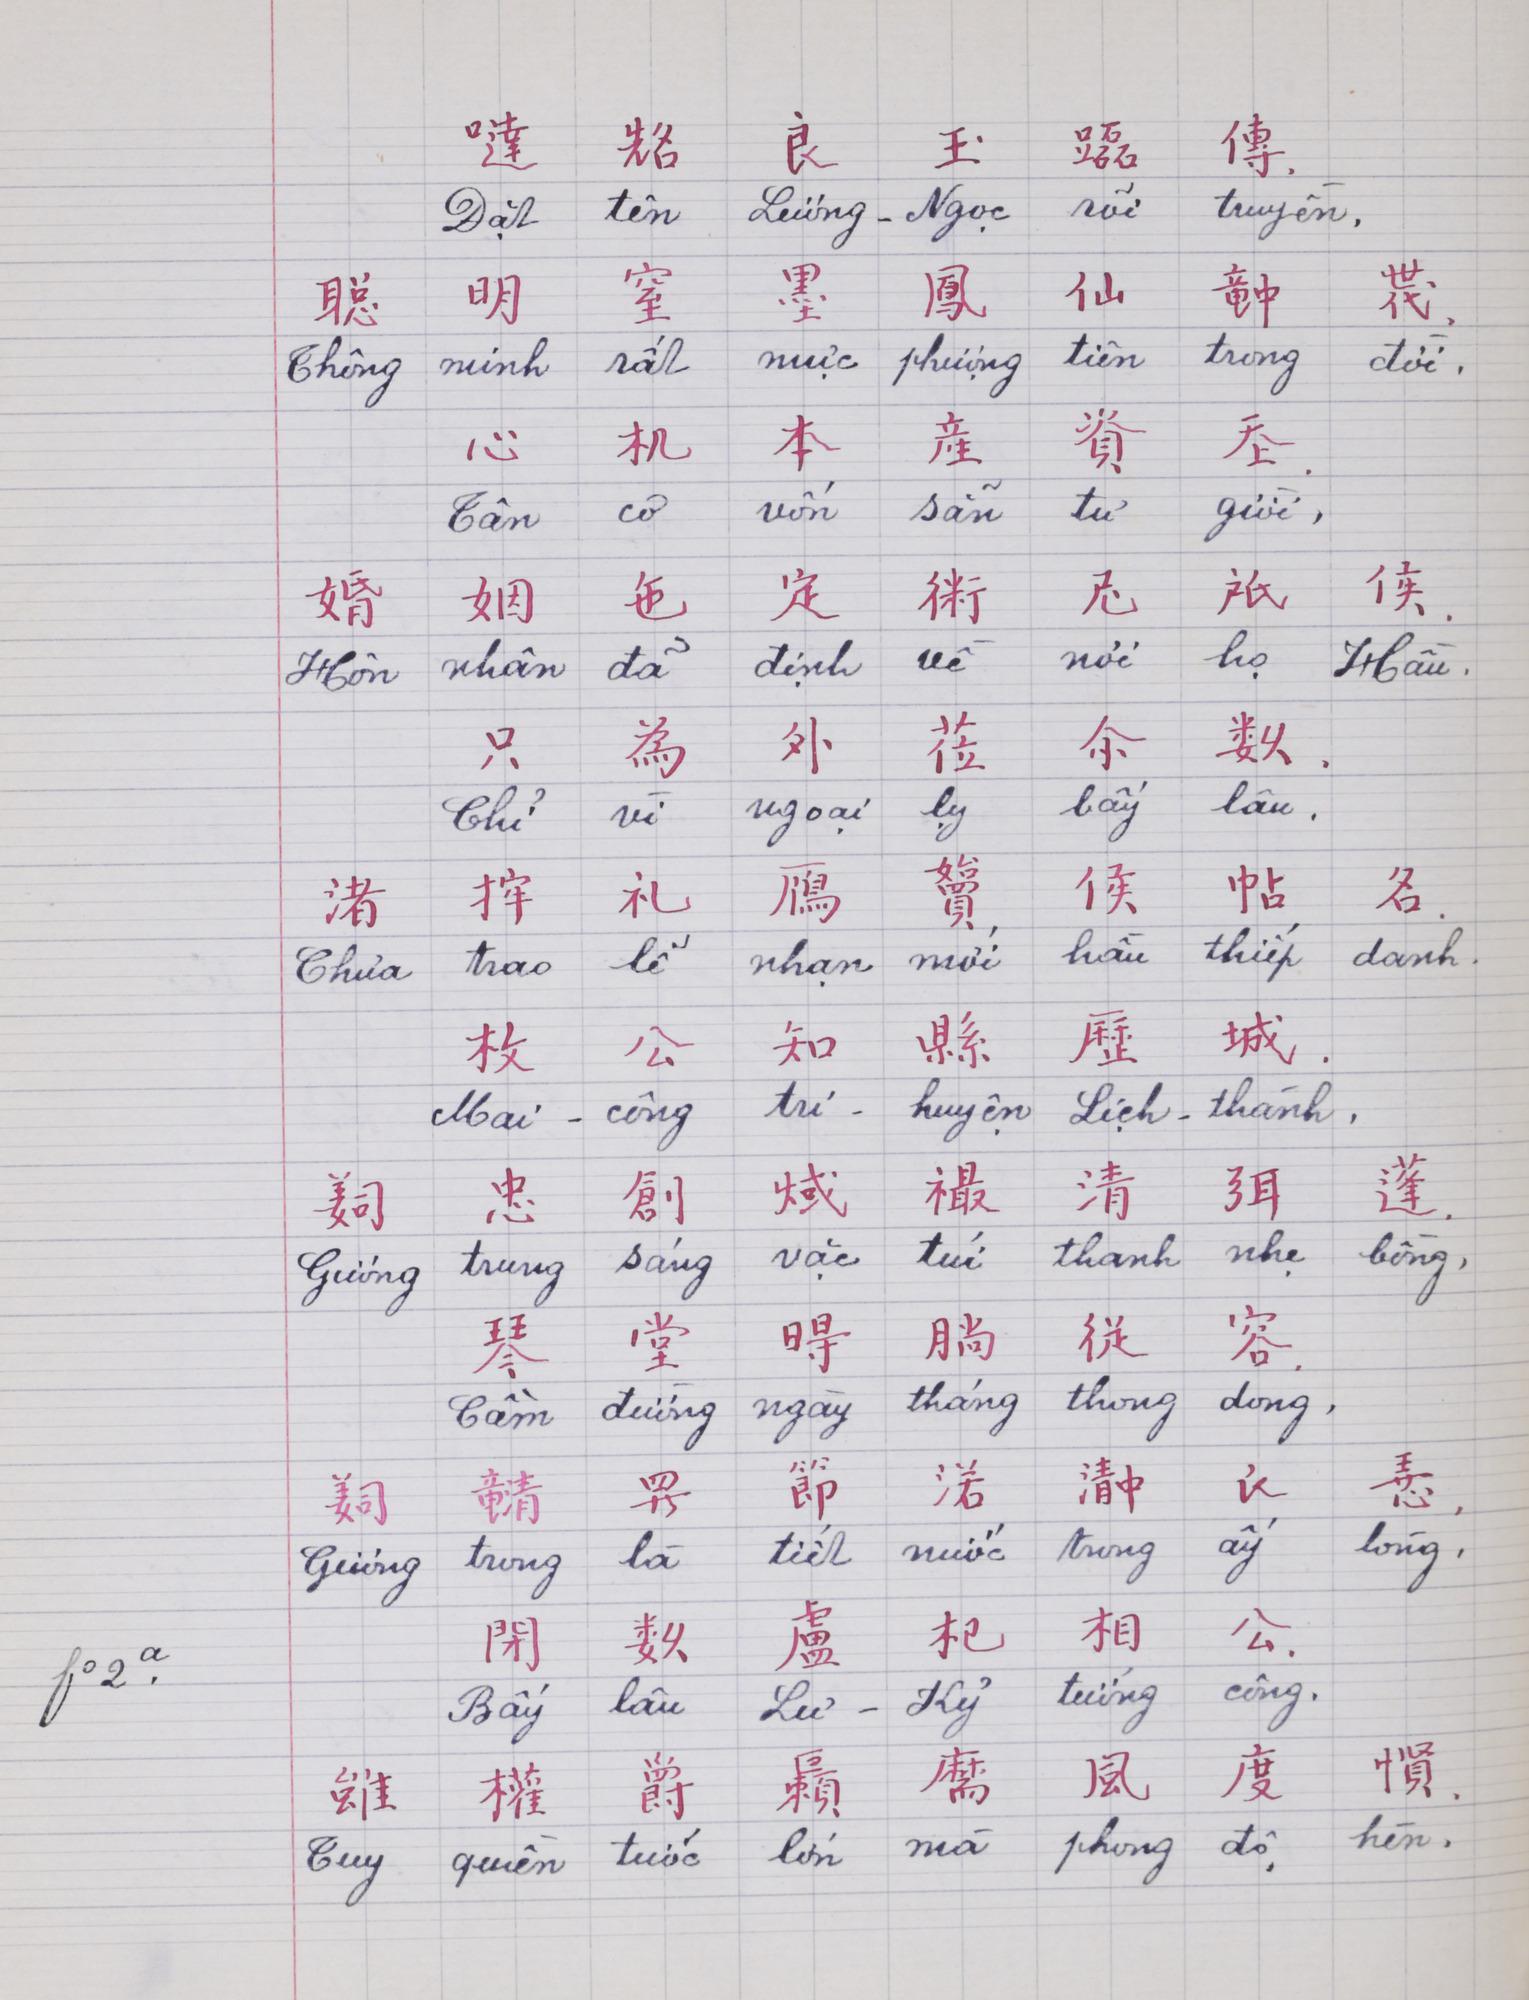 噠 𠸜 良 玉 𥗐 傳.
Đặt tên Lương - Ngọc rồi truyền,
聦 明 窒 墨 鳳 仙 𤤰 𠁀.
Thông minh rất mực phượng tiên trong đời.
心 机 本 產 資 𡗶.
Tân cơ vốn sẵn tư giời,
婚 姻 㐌 定 術 尼 祇 侯.
Hôn nhân đã định về nơi họ Hầu.
只 為 外 莅 尒 数.
Chỉ vì ngoại lỵ bấy lâu,
渚 㨔 礼 鴈 候 帖 名.
Chửa trao lễ nhạn mới hầu thiếp danh.
枚 公 知 縣 歷 城.
Mai - công tri - huyện Lịch - thành,
忠 創 㷤 襊 清 弭 蓬.
Gương trung sáng vặc túi thanh nhẹ bồng,
琴 堂 㝵 腡 從 容.
Cầm đường ngày tháng thong dong,
節 渃 𤁘 𧘇 𢚸.
Gương trong là tiết nước trong ấy lòng,
閑 数 盧 杞 相 公.
Bấy lâu Lư - Kỷ tướng công.
fº 2ª.
雖 權 爵 𡘯 麻 風 度 慣.
Tuy quyền tước lớn mà phong độ hèn.